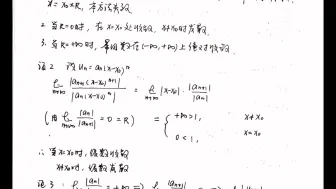 x = x₀±R, 本方法失效
2. 当R=0时, 在x=x₀处收敛, x≠x₀时发散
3. 当R=+∞时, 幂级数在(-∞,+∞)上绝对收敛
证2 设 Uₙ = aₙ(x-x₀)ⁿ
lim n→∞ |aₙ₊₁(x-x₀)ⁿ⁺¹| / |aₙ(x-x₀)ⁿ| = lim n→∞ |x-x₀| · |aₙ₊₁| / |aₙ|
(由 lim n→∞ |aₙ| / |aₙ₊₁| = 0 = R) = { +∞>1, x≠x₀
0<1, x=x₀
∴ 当x=x₀时, 级数收敛
x≠x₀时, 级数发散
证3: lim |aₙ| / |aₙ₊₁| = +∞ ⇒ lim |aₙ₊₁|